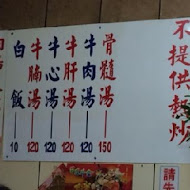 不提供熱炒
骨髓湯 150
牛肉湯 120
牛肝湯 120
牛心湯 120
牛腩湯 120
白飯 10
請先